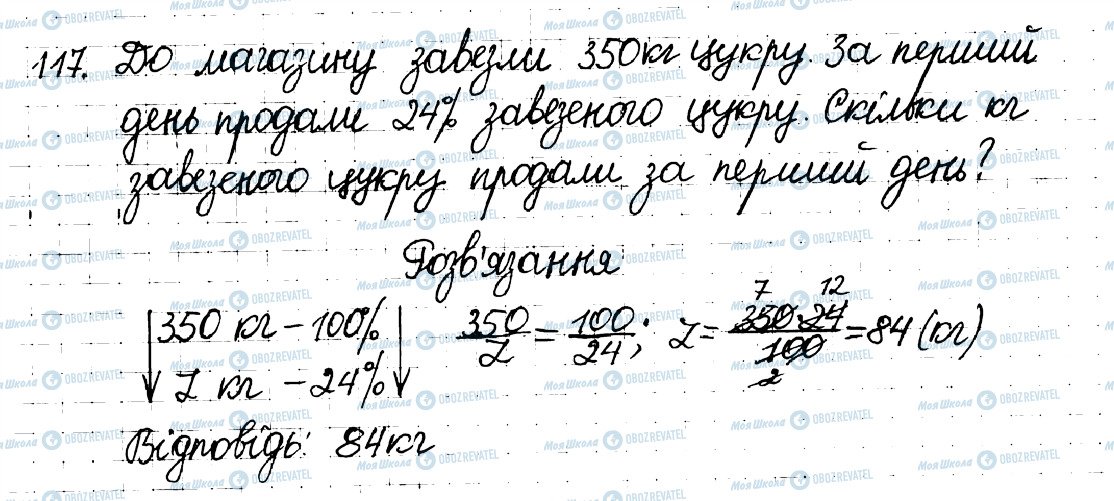 117. До магазину завезли 350кг цукру. За перший
день продали 24% завезеного цукру. Скільки кг
завезеного цукру продали за перший день?
Розв'язання
350 кг – 100%
z кг – 24%
350/z = 100/24; z = 350·24/100 = 84 (кг)
7 12
2
Відповідь: 84кг